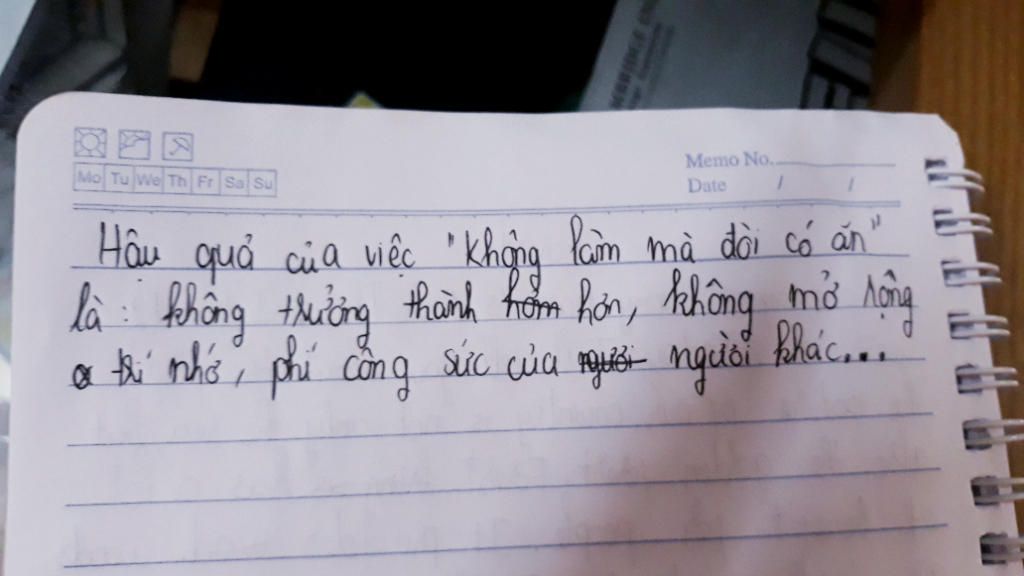 Memo No.
Mo Tu We Th Fr Sa Su
Date / /
Hậu quả của việc "không làm mà đòi có ăn"
là: không trưởng thành hơn, không mở rộng
trí nhớ, phí công sức của người khác...